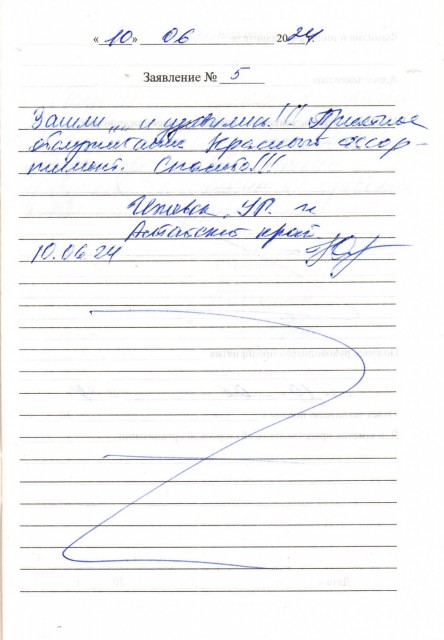 « 10 » 06 2024
Заявление № 5
Зашли ,,,, и удивились!!! Приятное
обслуживание Красивый ассор-
тимент. Спасибо!!!
Ижевск, УР. и
Алтайский край
10.06.24